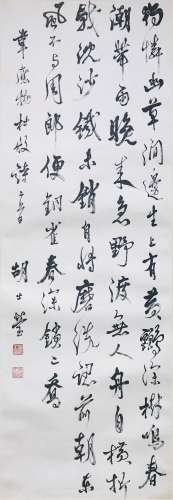 獨憐幽草澗邊生上有黃鸝深樹鳴春
潮帶雨晚來急野渡無人舟自橫折
戟沈沙鐵未銷自將磨洗認前朝東
風不與周郎便銅雀春深鎖二喬
韋應物杜牧詩二首
胡士瑩